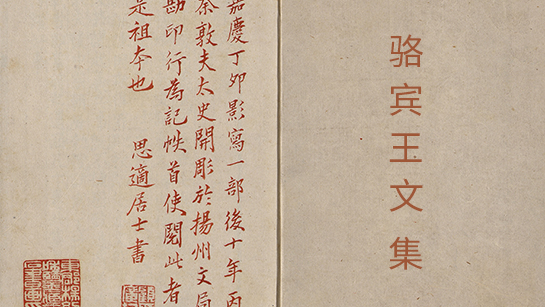 骆宾王文集
嘉慶丁夘影寫一部後十年丙
秦敦夫太史開彫於揚州文局
勘印行為記帙首使閱此者
是祖本也 思適居士書